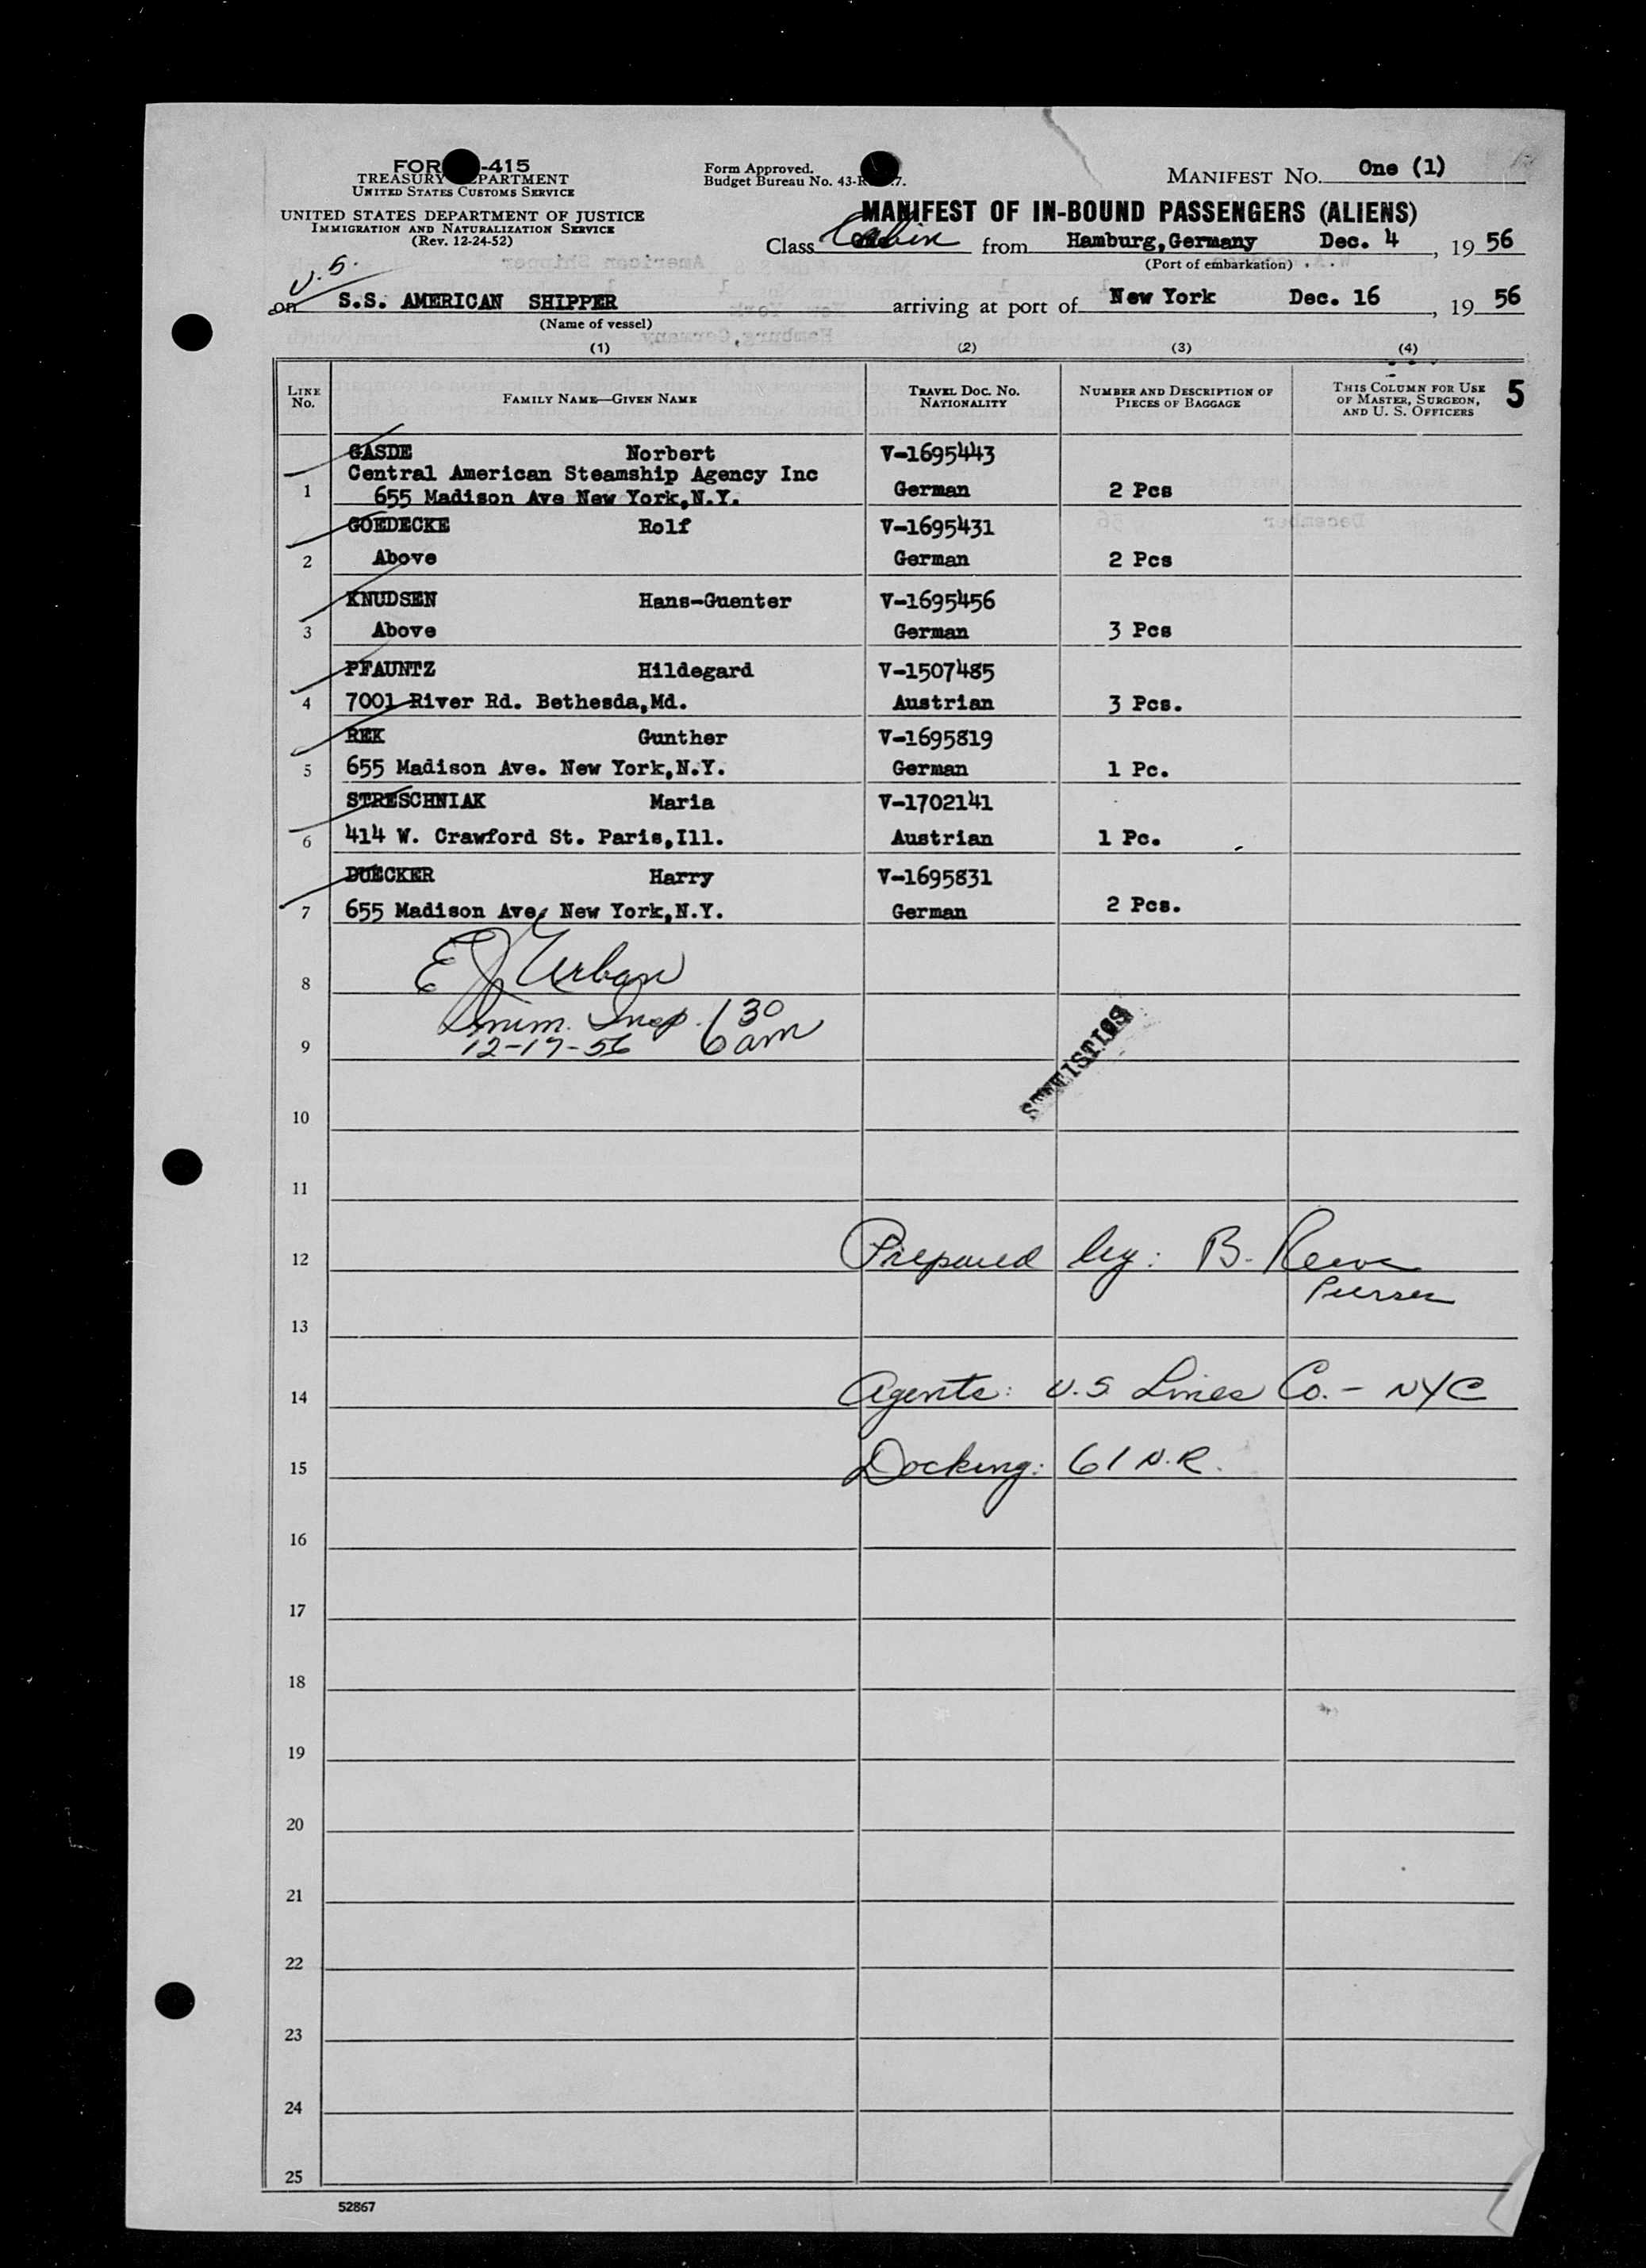 FOR -415
TREASURY PARTMENT
UNITED STATES CUSTOMS SERVICE
UNITED STATES DEPARTMENT OF JUSTICE
IMMIGRATION AND NATURALIZATION SERVICE
(Rev. 12-24-52)
Form Approved.
Budget Bureau No. 43-R 7.
MANIFEST NO. One (1)
MANIFEST OF IN-BOUND PASSENGERS (ALIENS)
Class Cabin from Hamburg,Germany Dec. 4, 19 56
(Port of embarkation)
U.S.
on S.S. AMERICAN SHIPPER arriving at port of New York Dec. 16, 19 56
(Name of vessel)
(1) (2) (3) (4)
LINE No. FAMILY NAME—GIVEN NAME TRAVEL DOC. NO. NATIONALITY NUMBER AND DESCRIPTION OF PIECES OF BAGGAGE THIS COLUMN FOR USE OF MASTER, SURGEON, AND U. S. OFFICERS 5
GASDE Norbert V-1695443
Central American Steamship Agency Inc
1 655 Madison Ave New York,N.Y. German 2 Pcs
GOEDECKE Rolf V-1695431
2 Above German 2 Pcs
KNUDSEN Hans-Guenter V-1695456
3 Above German 3 Pcs
PFAUNTZ Hildegard V-1507485
4 7001 River Rd. Bethesda,Md. Austrian 3 Pcs.
REK Gunther V-1695819
5 655 Madison Ave. New York,N.Y. German 1 Pc.
STRESCHNIAK Maria V-1702141
6 414 W. Crawford St. Paris,Ill. Austrian 1 Pc.
DUECKER Harry V-1695831
7 655 Madison Ave, New York,N.Y. German 2 Pcs.
8 E J Urban
Imm. Insp. 6 30 am
9 12-17-56
STATISTICS
10
11
12 Prepared by: B. Reeve
Purser
13
14 Agents: U.S. Lines Co. - NYC
15 Docking: 61 N.R.
16
17
18
19
20
21
22
23
24
25
52867